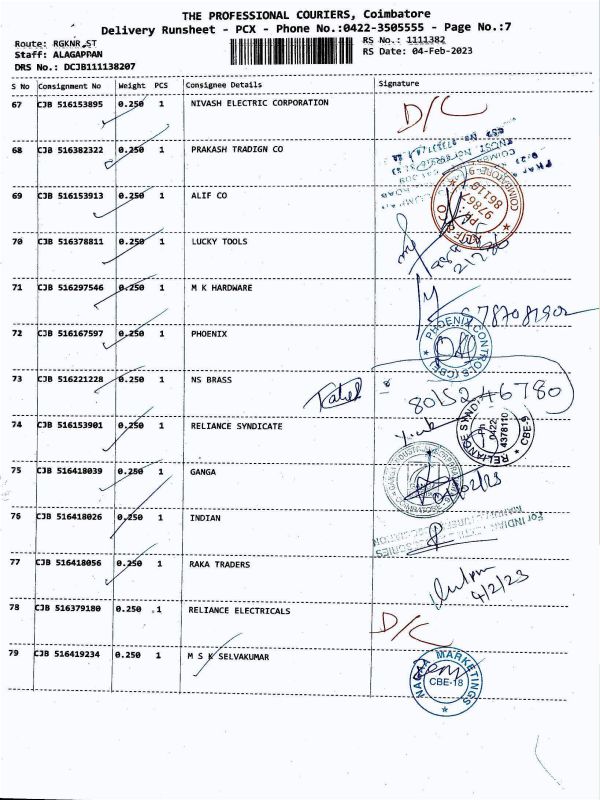 THE PROFESSIONAL COURIERS, Coimbatore
Delivery Runsheet - PCX - Phone No.:0422-3505555 - Page No.:7
Route: RGKNR_ST RS No.: 1111382
Staff: ALAGAPPAN RS Date: 04-Feb-2023
DRS No.: DCJB111138207
S No Consignment No Weight PCS Consignee Details Signature
67 CJB 516153895 0.250 1 NIVASH ELECTRIC CORPORATION D/C
68 CJB 516382322 0.250 1 PRAKASH TRADIGN CO
69 CJB 516153913 0.250 1 ALIF CO
COIMBATORE-9
70 CJB 516378811 0.250 1 LUCKY TOOLS
71 CJB 516297546 0.250 1 M K HARDWARE
72 CJB 516167597 0.250 1 PHOENIX
PHOENIX CONTROLS (CBE)
73 CJB 516221228 0.250 1 NS BRASS
8015246780
74 CJB 516153901 0.250 1 RELIANCE SYNDICATE
RELIANCE SYNDICATE CBE-9
Ph
0422
4378110
75 CJB 516418039 0.250 1 GANGA
76 CJB 516418026 0.250 1 INDIAN
For INDIAN
77 CJB 516418056 0.250 1 RAKA TRADERS
4/2/23
78 CJB 516379180 0.250 1 RELIANCE ELECTRICALS D/C
79 CJB 516419234 0.250 1 M S K SELVAKUMAR
NAGAA MARKETINGS
CBE-18